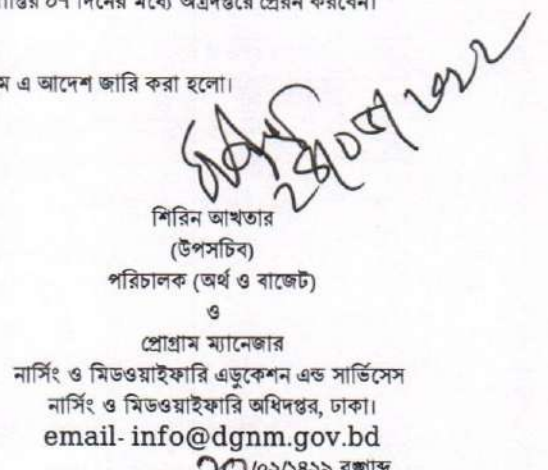 ০৭ দিনের মধ্যে অত্রদপ্তরে প্রেরন করবেন।
এ আদেশ জারি করা হলো।
শিরিন আখতার
(উপসচিব)
পরিচালক (অর্থ ও বাজেট)
ও
প্রোগ্রাম ম্যানেজার
নার্সিং ও মিডওয়াইফারি এডুকেশন এন্ড সার্ভিসেস
নার্সিং ও মিডওয়াইফারি অধিদপ্তর, ঢাকা।
email- info@dgnm.gov.bd
বঙ্গাব্দ